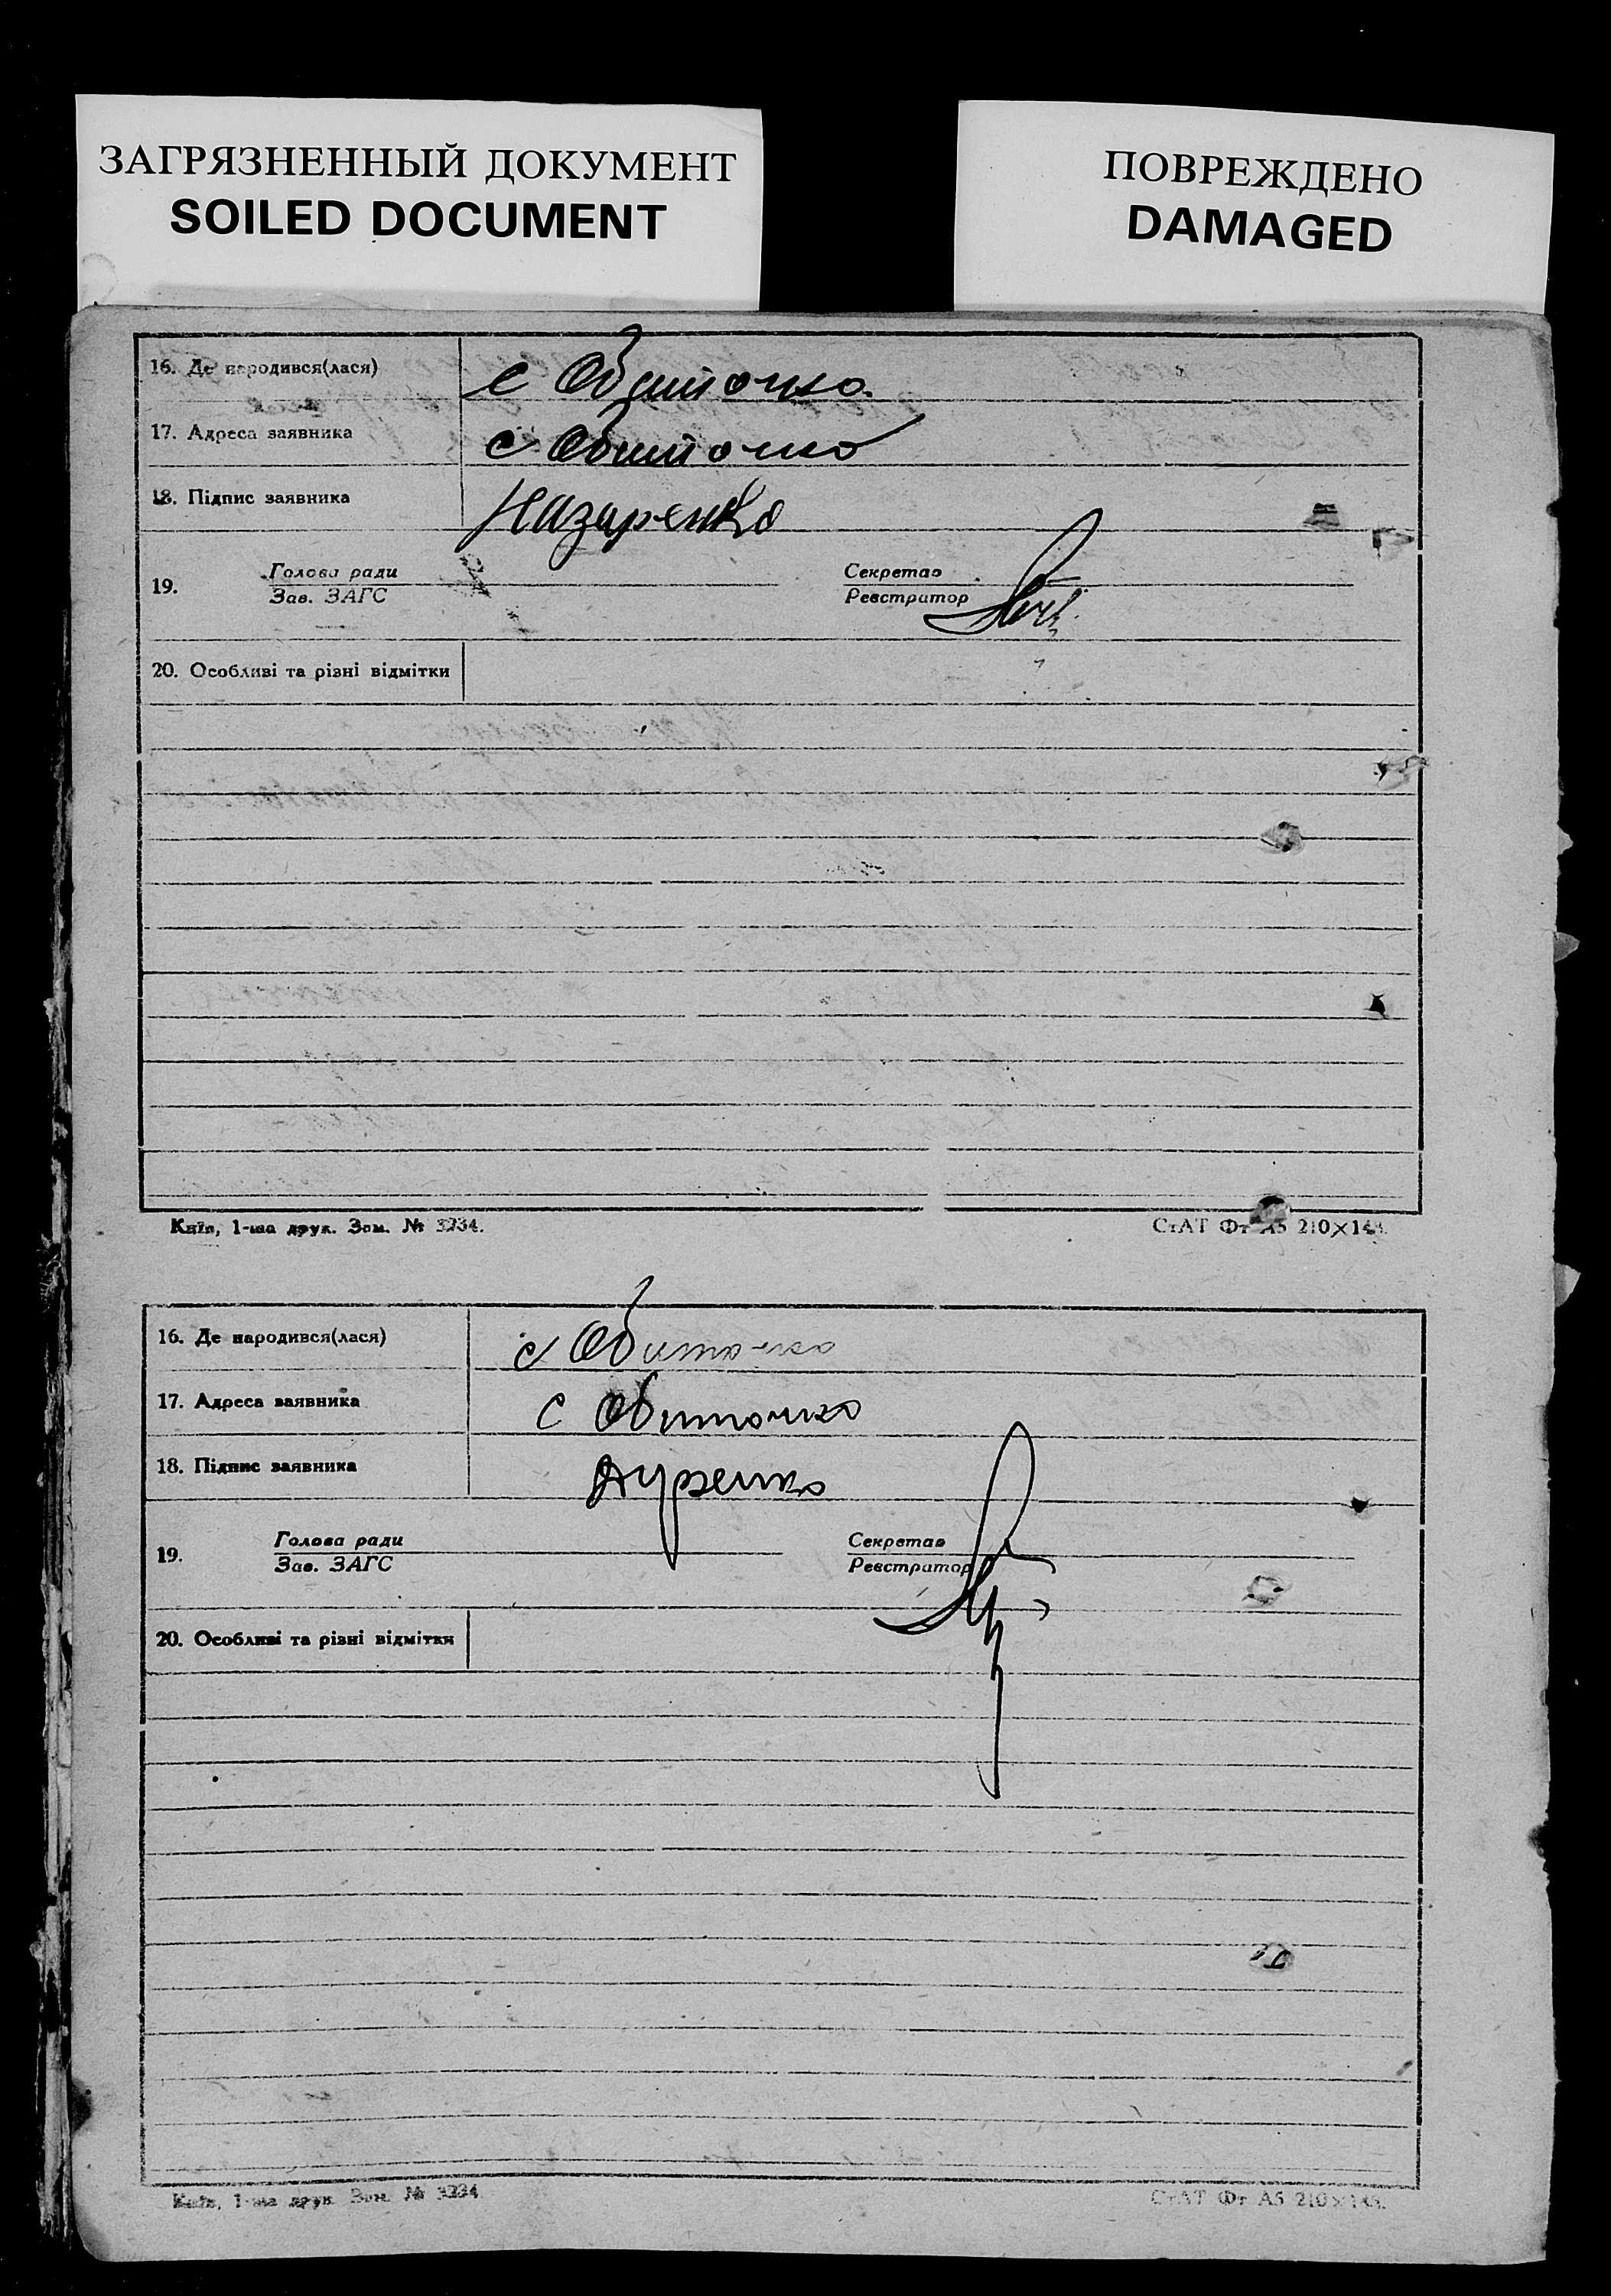 ЗАГРЯЗНЕННЫЙ ДОКУМЕНТ
SOILED DOCUMENT
ПОВРЕЖДЕНО
DAMAGED
16. Де народився(лася) с Обиточно
17. Адреса заявника с Обиточно
18. Підпис заявника Назаренко
19. Голова ради Секретар
Зав. ЗАГС Реєстратор
20. Особливі та різні відмітки
Київ, 1-ша друк. Зам. № 3234. СтАТ Фт А5 210×148.
16. Де народився(лася) с Обиточно
17. Адреса заявника с Обиточно
18. Підпис заявника
19. Голова ради Секретар
Зав. ЗАГС Реєстратор
20. Особливі та різні відмітки
Київ, 1-ша друк. Зам. № 3234. СтАТ Фт А5 210×148.